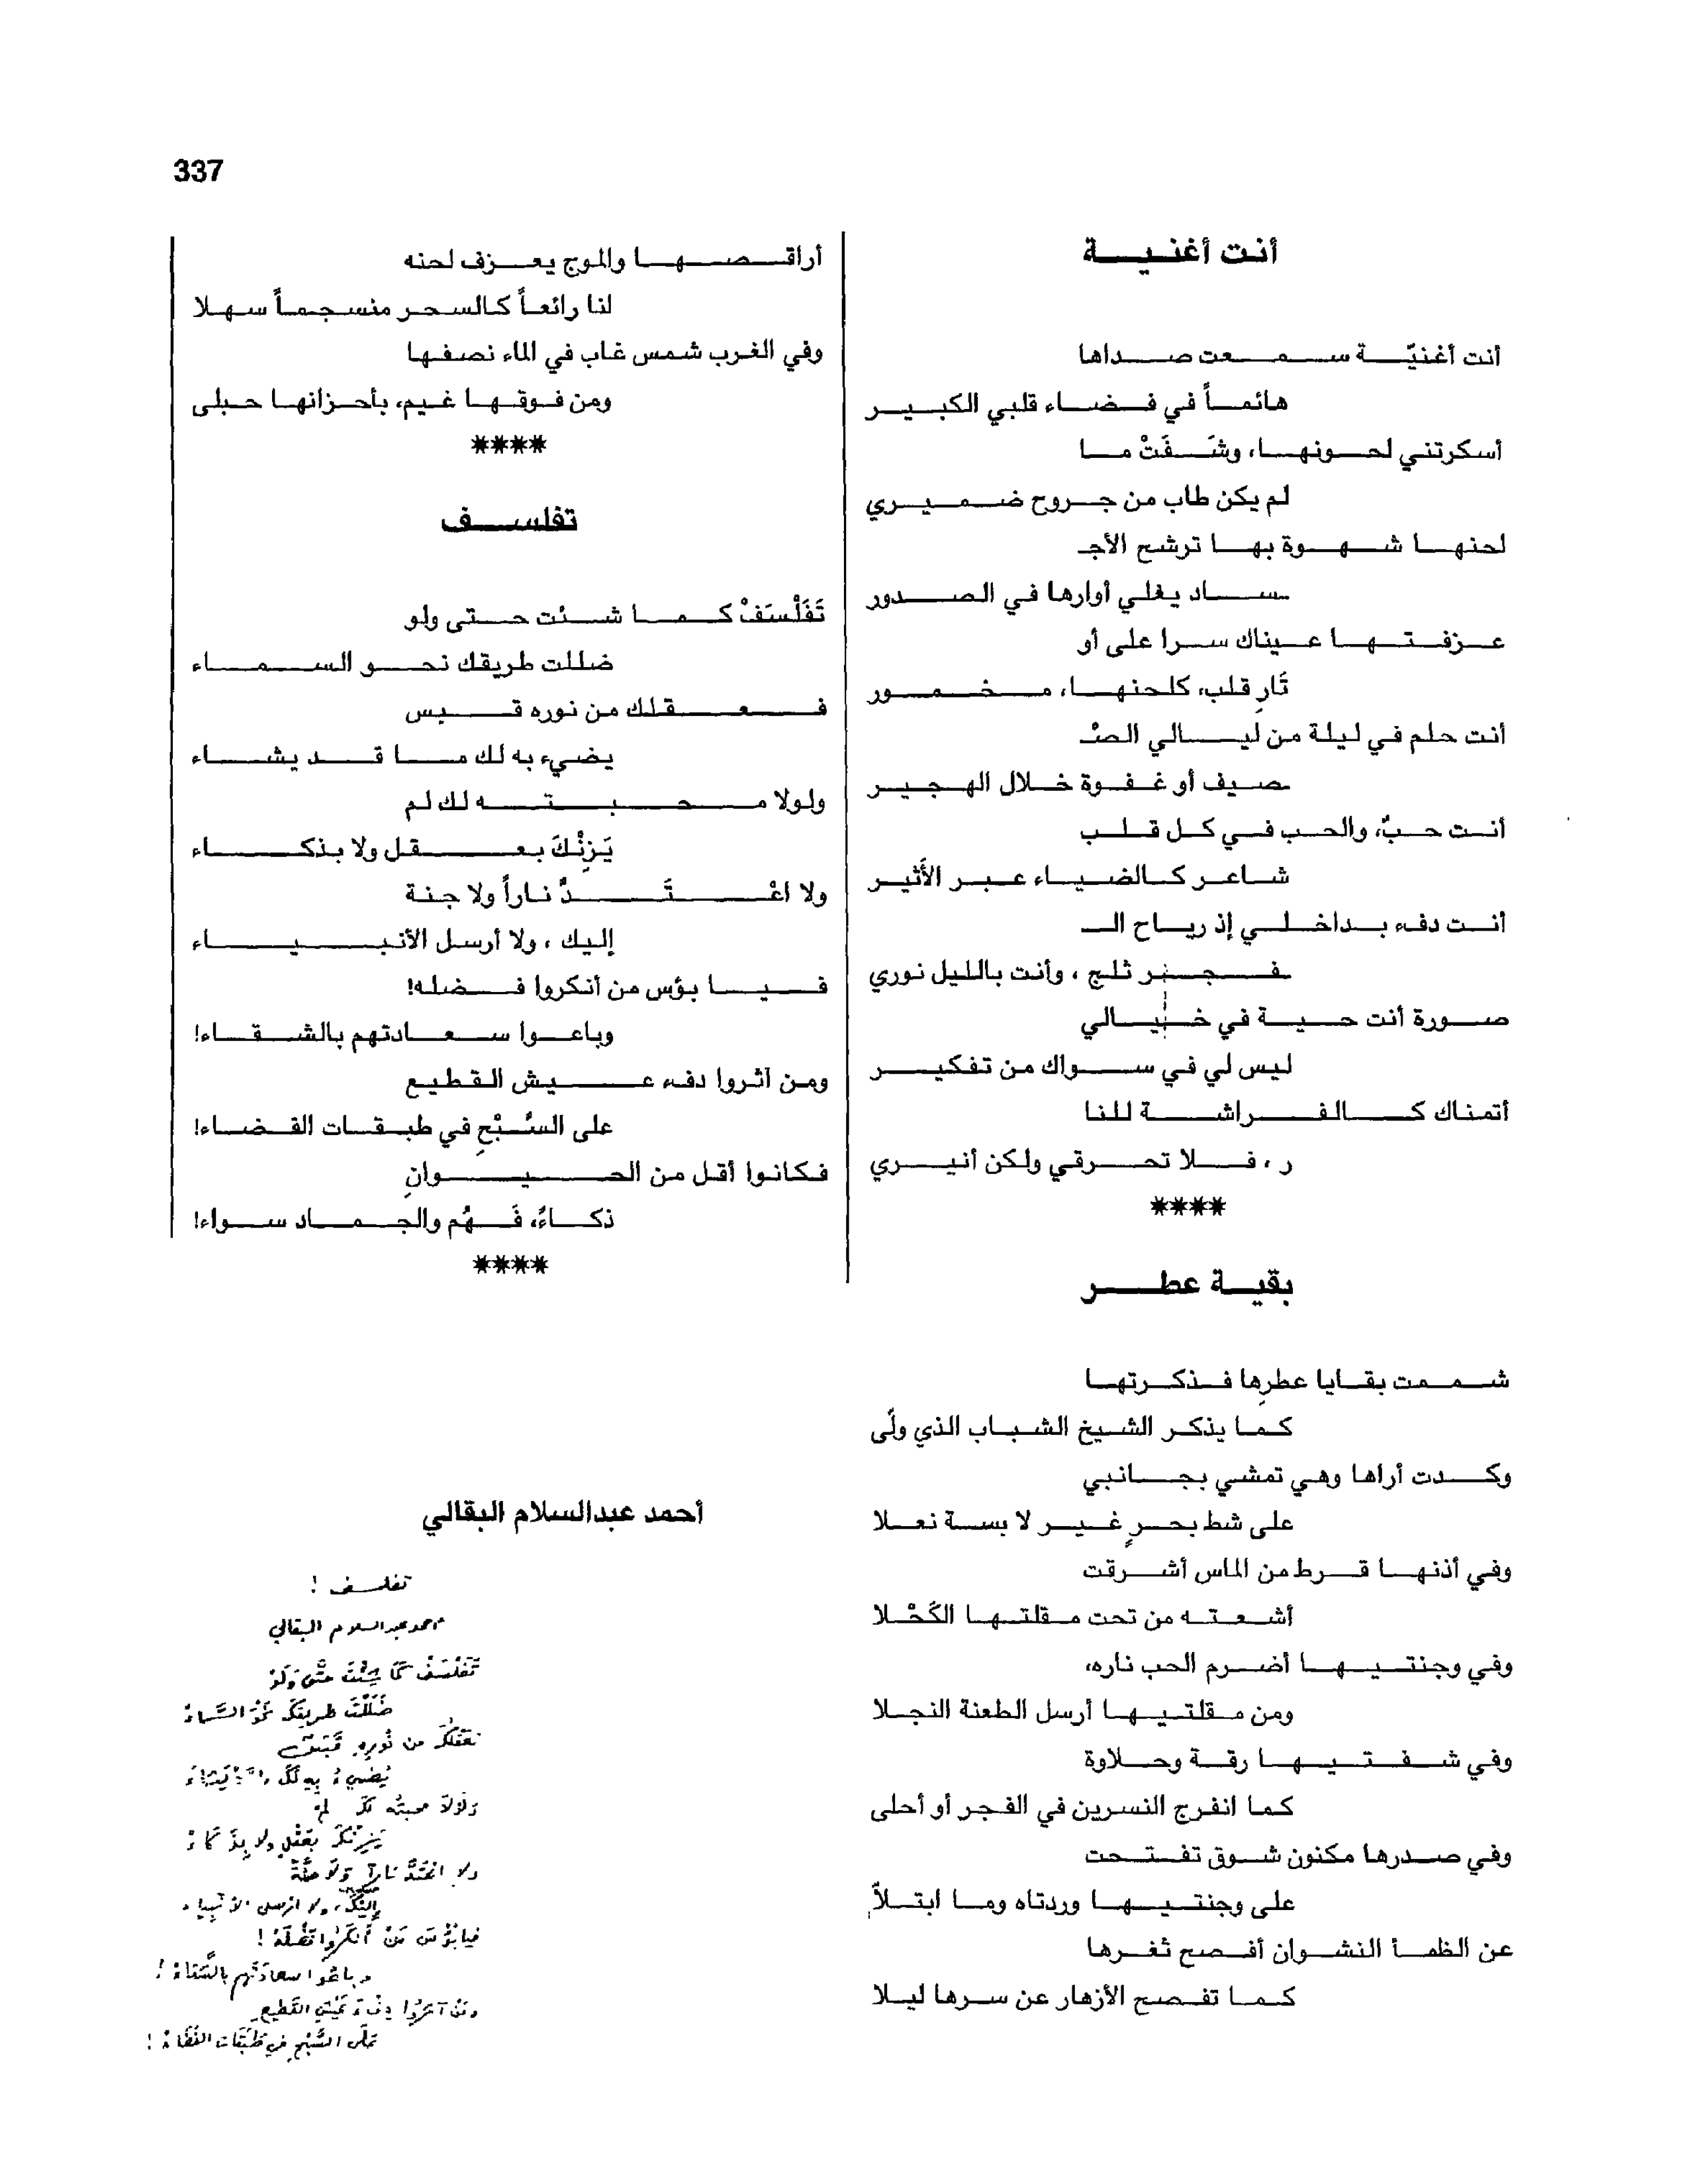 337
أنت أغنية
أنت أغنيّة سمعت صداها
هائماً في فضاء قلبي الكبير
أسكرتني لحونها، وشَفَتْ ما
لم يكن طاب من جروح ضميري
لحنها شهوة بها ترشح الأجـ
ـساد يغلي أوارها في الصدور
عزفتها عيناك سرا على أو
تَارِ قلب، كلحنها، مخمور
أنت حلم في ليلة من ليالي الصـْ
ـصيف أو غفوة خلال الهجير
أنت حبٌ، والحب في كل قلب
شاعر كالضياء عبر الأثير
أنت دفء بداخلي إذ رياح الـ
ـفجر ثلج ، وأنت بالليل نوري
صورة أنت حية في خيالي
ليس لي في سواك من تفكير
أتمناك كالفراشة للنا
ر ، فلا تحرقي ولكن أنيري
****
بقية عطر
شممت بقايا عطرِها فذكرتها
كما يذكر الشيخ الشباب الذي ولّى
وكدت أراها وهي تمشي بجانبي
على شط بحرٍ غير لا بسة نعلا
وفي أذنها قرط من الماس أشرقت
أشعته من تحت مقلتها الكَحْلا
وفي وجنتيها أضرم الحب ناره،
ومن مقلتيها أرسل الطعنة النجلا
وفي شفتيها رقة وحلاوة
كما انفرج النسرين في الفجر أو أحلى
وفي صدرها مكنون شوق تفتحت
على وجنتيها وردتاه وما ابتلاّ
عن الظمأ النشوان أفصح ثغرها
كما تفصح الأزهار عن سرها ليلا
أراقصها والموج يعزف لحنه
لنا رائعاً كالسحر منسجماً سهلا
وفي الغرب شمس غاب في الماء نصفها
ومن فوقها غيم، بأحزانها حبلى
****
تفلسف
تَفَلْسَفْ كما شئت حتى ولو
ضللت طريقك نحو السماء
فعقلك من نوره قبس
يضيء به لك ما قد يشاء
ولولا محبته لك لم
يَزِنْكَ بعقل ولا بذكاء
ولا اعْتَدَّ ناراً ولا جنة
إليك ، ولا أرسل الأنبياء
فيا بؤس من أنكروا فضله!
وباعوا سعادتهم بالشقاء!
ومن آثروا دفء عيش القطيع
على السُبْحِ في طبقات الفضاء!
فكانوا أقل من الحيوانِ
ذكاءً، فَهُم والجماد سواء!
****
أحمد عبدالسلام البقالي
تفلسف !
أحمد عبد السلام البقالي
تَفَلْسَفْ كما شِئْتَ حتَّى وَلَوْ
ضَلَلْتَ طريقكَ نَحْوَ السَّماءْ
فعَقلكَ من نُورِهِ قَبَسٌ
يُضيءُ بِهِ لكَ ما قد يَشاءْ
وَلَوْلا محبتُه لكَ لمْ
يَزِنْكَ بعَقْلٍ ولا بِذَكاءْ
ولا اعْتَدَّ ناراً وَلا جنَّةً
إليْكَ، ولا أرسل الأنبياء
فيا بُؤْسَ مَنْ أنكَروا فَضْلَهُ !
وباعُوا سعادَتَهم بالشَّقاءْ !
ومَنْ آثرُوا دِفْءَ عَيْشِ القَطيعِ
على السُّبْحِ في طَبَقَاتِ الفَضَاءْ !